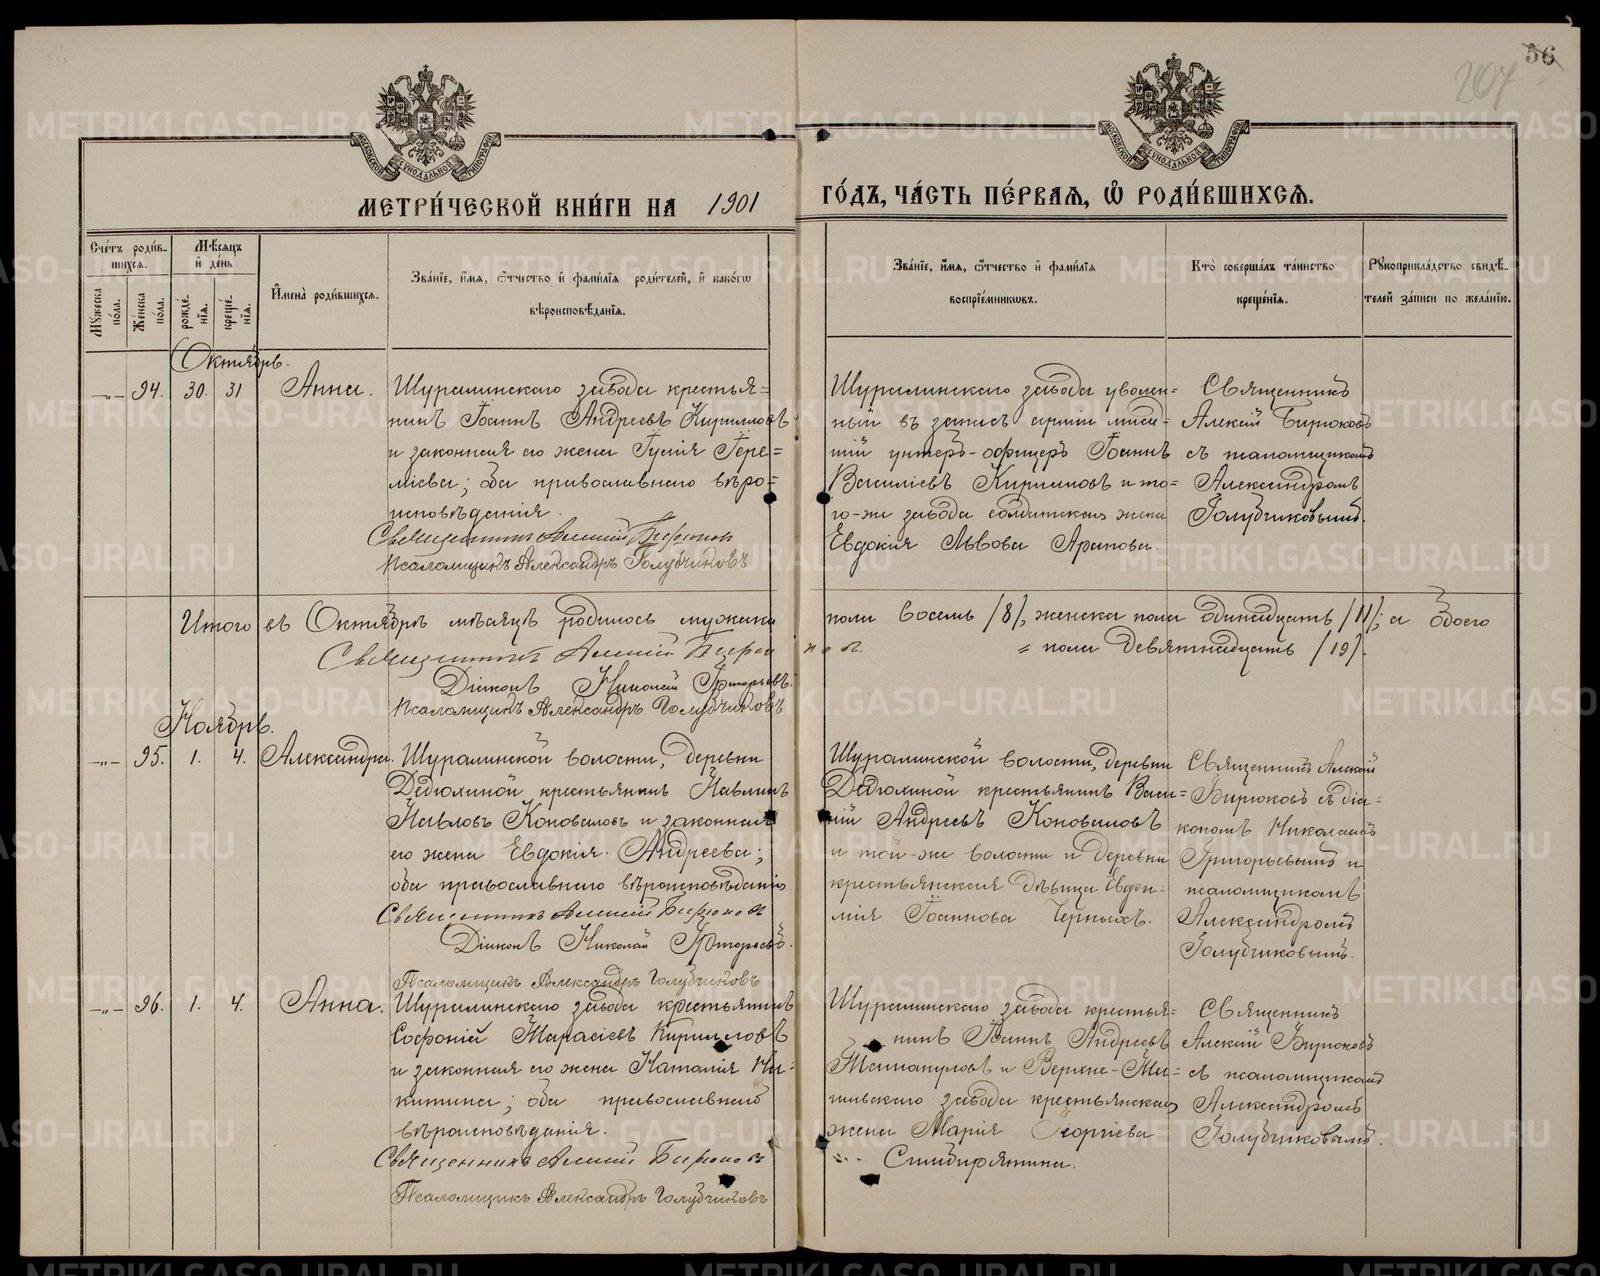 56
207
МЕТРИ́ЧЕСКОЙ КНИ́ГИ НА 1901 ГО́ДЪ, ЧА́СТЬ ПЕ́РВАѦ, Ѽ РОДИ́ВШИХСѦ.
Сче́тъ роди́в-
шихся.
Мѣ́сяцъ
и҆ де́нь
Мꙋ́жеска по́ла.
Же́нска по́ла.
рожде́-
нїѧ.
креще́-
нїѧ.
И҆мена̀ роди́вшихсѧ.
Зва́нїе, и҆́мѧ, ѻ҆́тчество и҆ фами́лїѧ роди́телей, и҆ како́гѡ
вѣроисповѣ́данїѧ.
Зва́нїе, и҆́мѧ, ѻ҆́тчество и҆ фами́лїѧ
воспрїе́мникѡвъ.
Кто̀ соверша́лъ та́инство
креще́нїѧ.
Рꙋкоприкла́дство свидѣ́-
телей за́писи по жела́нїю.
Октябрь.
—„— 94. 30. 31 Анна.
Шуралинскаго завода крестья=
нинъ Іоаннъ Андреевъ Кирилловъ
и законная его жена
оба православнаго вѣро=
исповѣданія.
Священникъ Алексій Бирюков
Псаломщикъ Александръ Голубчиковъ
Шуралинскаго завода уволен=
ный въ запасъ арміи млад-
шій унтеръ-офицеръ Іоаннъ
Василіевъ Кирилловъ и то=
го-же завода солдатская жена
Евдокія Львова Арапова.
Священникъ
Алексій Бирюковъ
съ псаломщикомъ
Александромъ
Голубчиковымъ.
Итого въ Октябрѣ мѣсяцѣ родилось мужска пола восемь /8/, женска пола одинадцать /11/; а обоего
= пола девятнадцать /19/.
Священникъ Алексій Бирюков
Діаконъ Николай Григорьевъ.
Псаломщикъ Александръ Голубчиковъ
Ноябрь.
—„— 95. 1. 4. Александра.
Шуралинской волости, деревни
Дедюлиной крестьянинъ Павлинъ
Павловъ Коноваловъ и законная
его жена Евдокія Андреева;
оба православнаго вѣроисповѣданія
Священникъ Алексій Бирюков
Діаконъ Николай Григорьевъ.
Псаломщикъ Александръ Голубчиковъ
Шуралинской волости, деревни
Дедюлиной крестьянинъ Васи=
лій Андреевъ Коноваловъ
и той-же волости и деревни
крестьянская дѣвица Евфи-
мія Іоаннова Черныхъ.
Священникъ Алексій
Бирюковъ съ діа=
кономъ Николаемъ
Григорьевымъ и
псаломщикомъ
Александромъ
Голубчиковымъ.
—„— 96. 1. 4. Анна.
Шуралинскаго завода крестьянинъ
Софоній Тарасіевъ Кирилловъ
и законная его жена Наталія Ни-
китина; оба православнаго
вѣроисповѣданія.
Священникъ Алексій Бирюков
Псаломщикъ Александръ Голубчиковъ
Шуралинскаго завода крестья=
нинъ Іоаннъ Андреевъ
и Верхне-Та=
гильскаго завода крестьянская
жена Марія Георгіева
Симбирятина.
Священникъ
Алексій Бирюковъ
съ псаломщикомъ
Александромъ
Голубчиковымъ.
METRIKI.GASO-URAL.RU